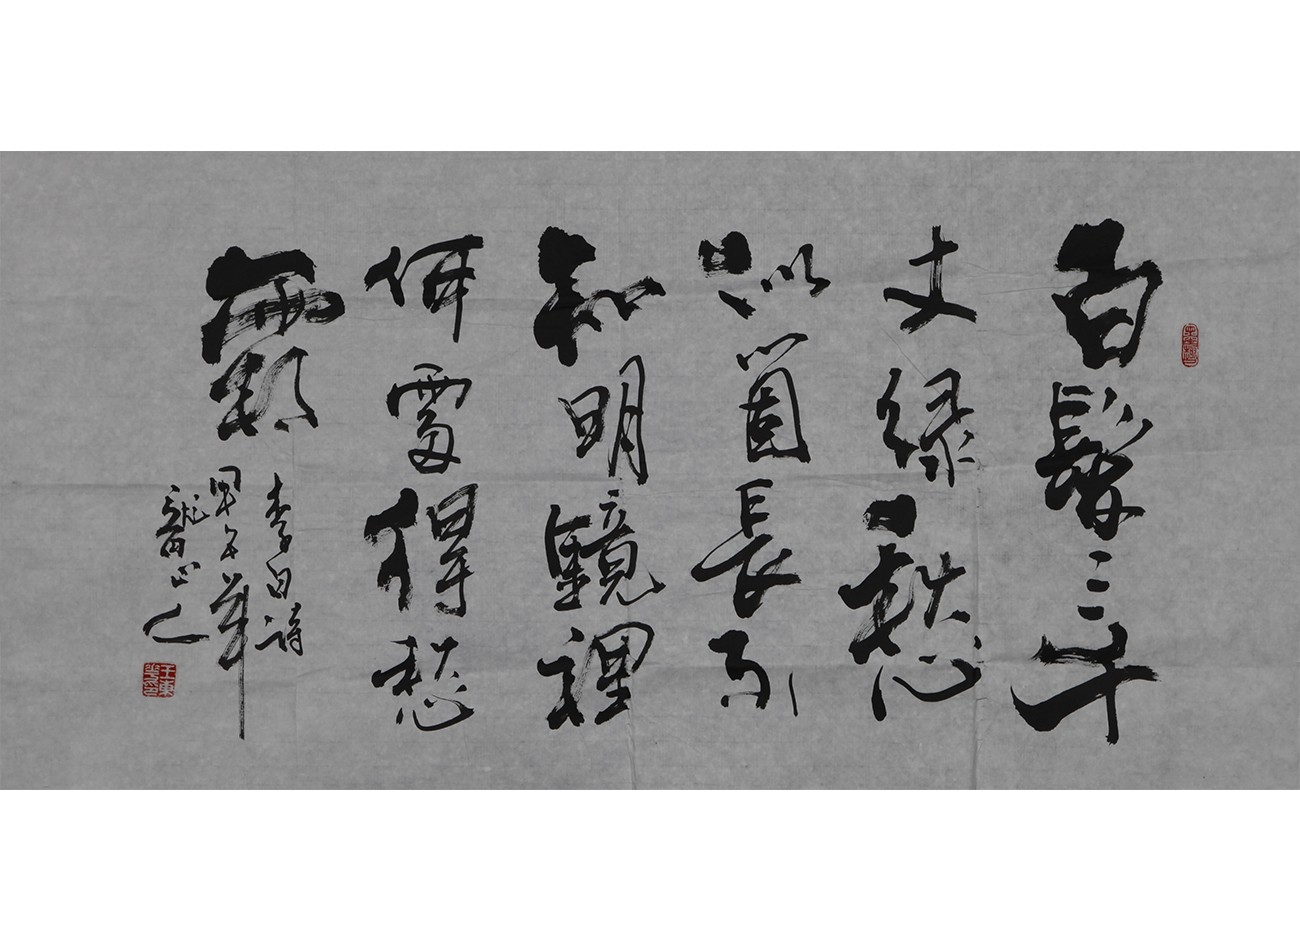 白髮三千
丈緣愁
似箇長不
知明鏡裡
何處得愁
霜
李白詩
甲午
山人